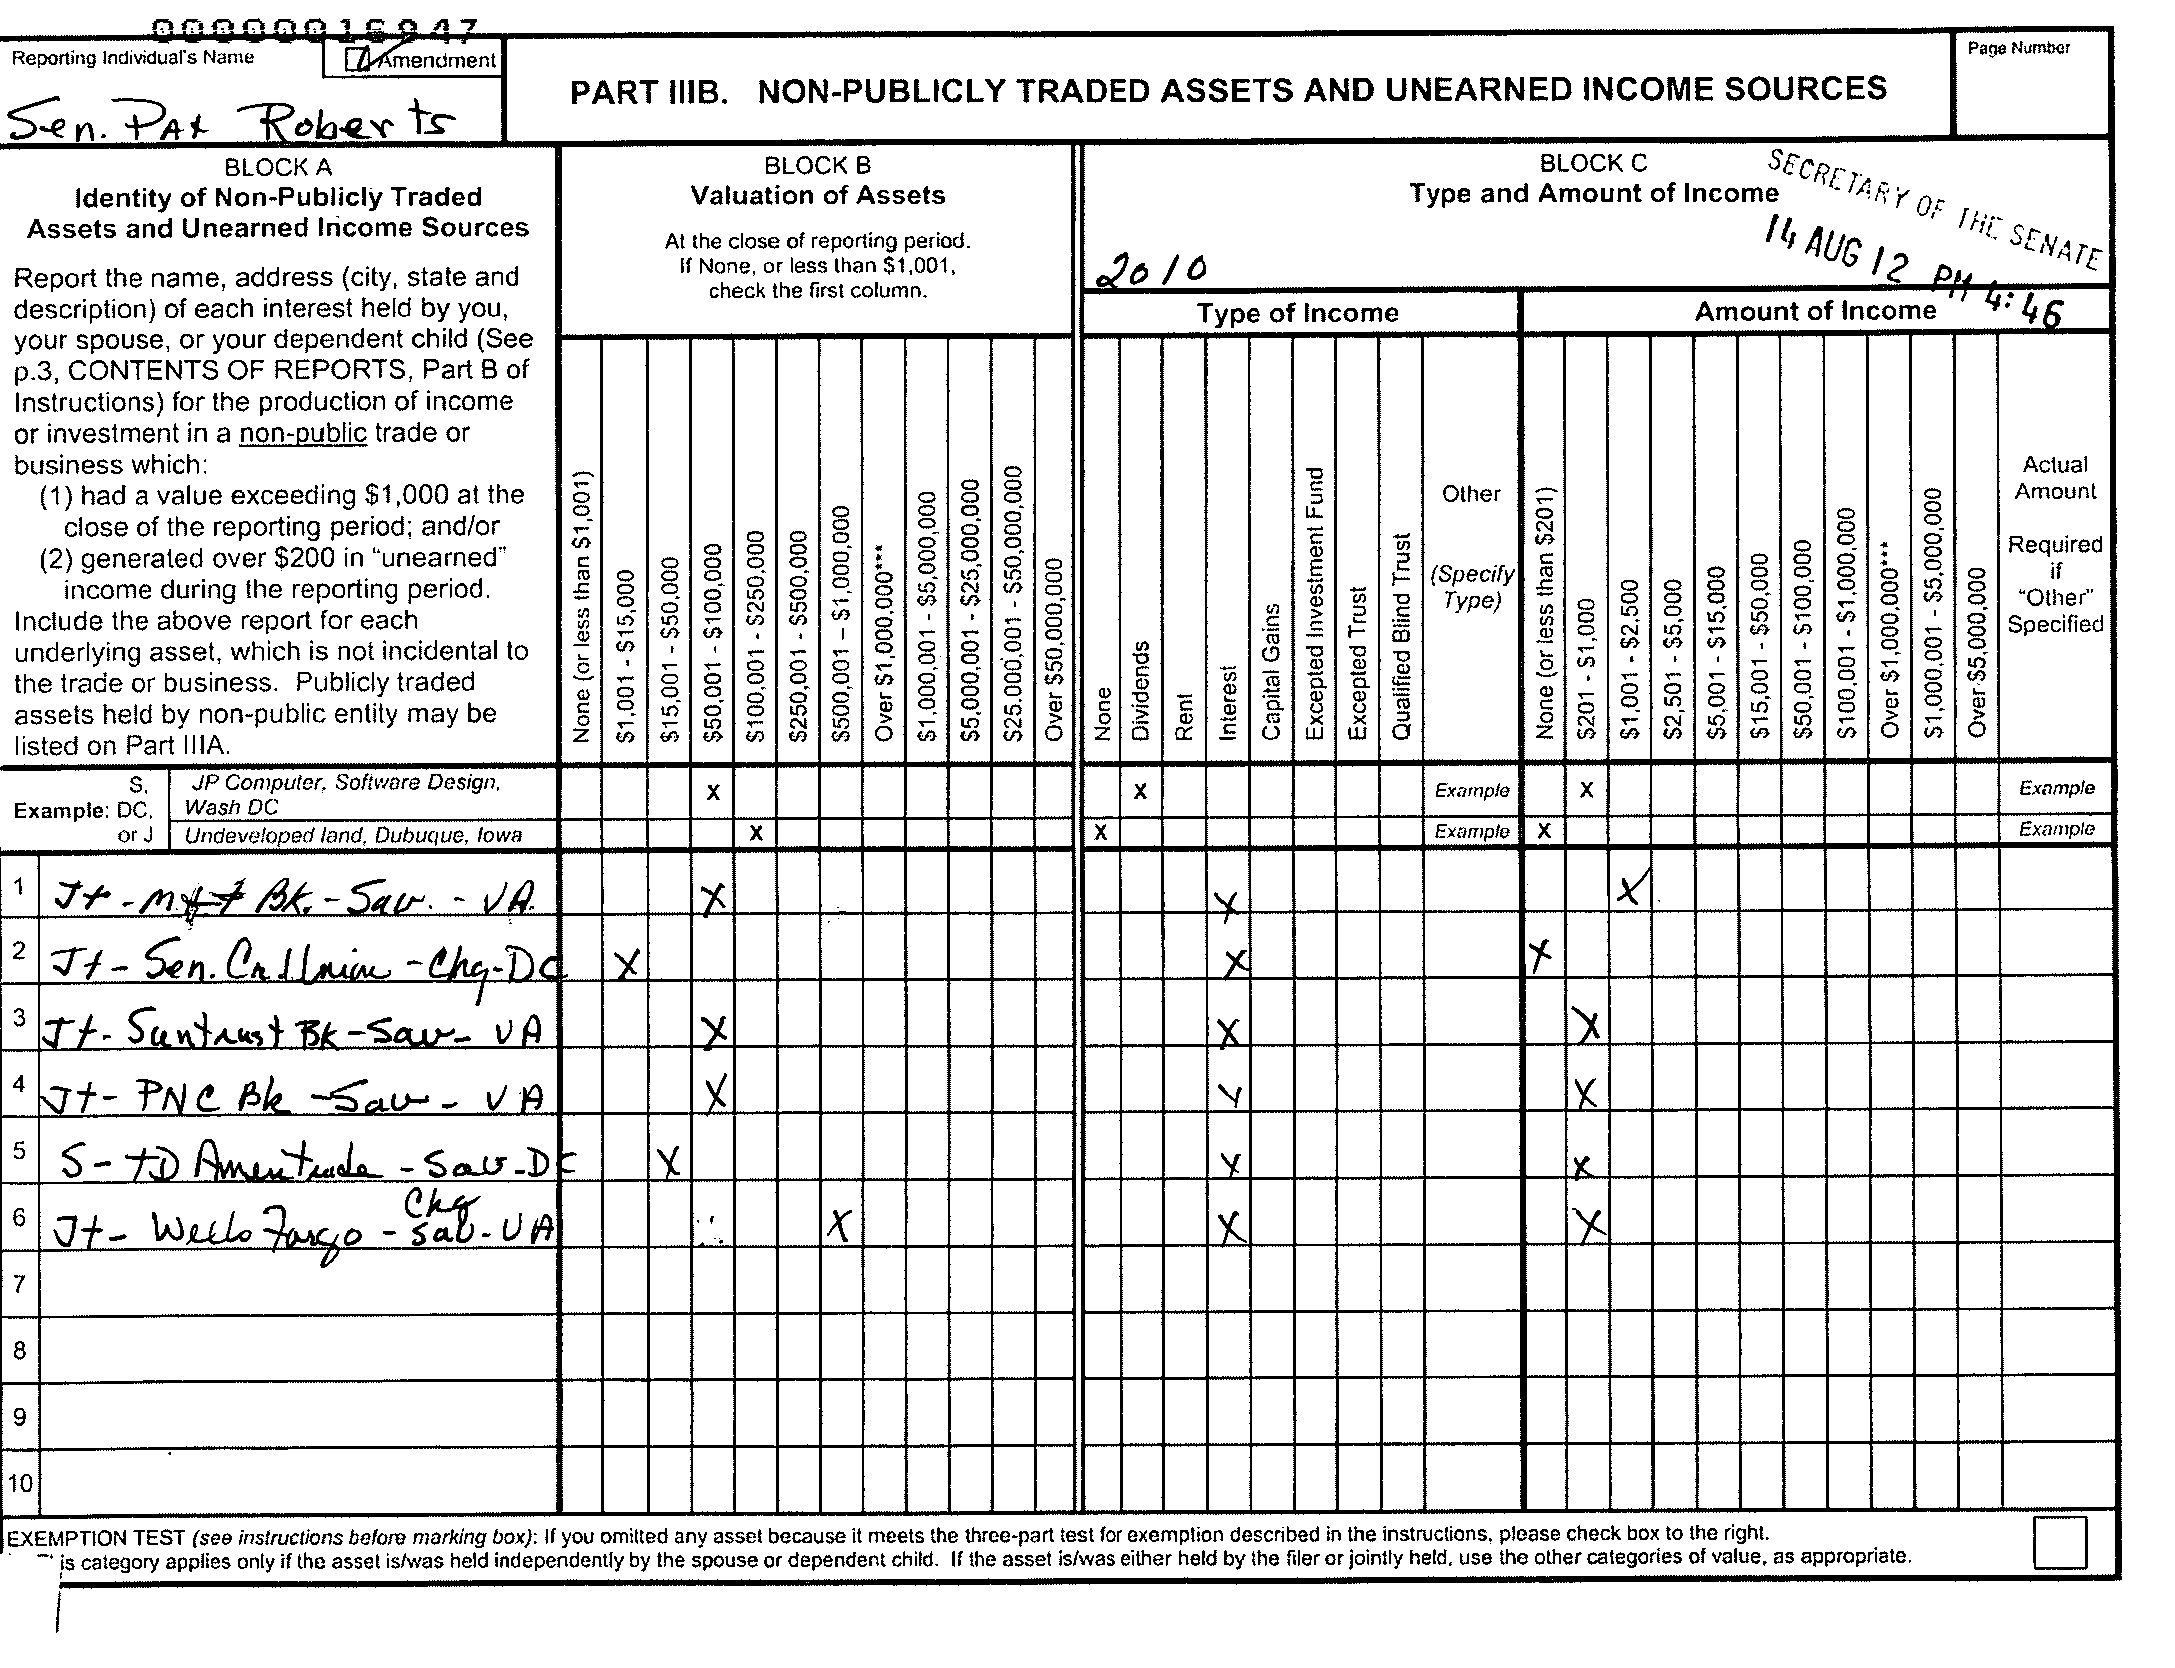 00000016947
Reporting Individual's Name
Amendment
Sen. Pat Roberts
PART IIIB. NON-PUBLICLY TRADED ASSETS AND UNEARNED INCOME SOURCES
Page Number
BLOCK A
Identity of Non-Publicly Traded
Assets and Unearned Income Sources
Report the name, address (city, state and
description) of each interest held by you,
your spouse, or your dependent child (See
p.3, CONTENTS OF REPORTS, Part B of
Instructions) for the production of income
or investment in a non-public trade or
business which:
(1) had a value exceeding $1,000 at the
close of the reporting period; and/or
(2) generated over $200 in "unearned"
income during the reporting period.
Include the above report for each
underlying asset, which is not incidental to
the trade or business. Publicly traded
assets held by non-public entity may be
listed on Part IIIA.
BLOCK B
Valuation of Assets
At the close of reporting period.
If None, or less than $1,001,
check the first column.
None (or less than $1,001)
$1,001 - $15,000
$15,001 - $50,000
$50,001 - $100,000
$100,001 - $250,000
$250,001 - $500,000
$500,001 – $1,000,000
Over $1,000,000***
$1,000,001 - $5,000,000
$5,000,001 - $25,000,000
$25,000,001 - $50,000,000
Over $50,000,000
BLOCK C
Type and Amount of Income
SECRETARY OF THE SENATE
14 AUG 12 PM 4:46
2010
Type of Income
Amount of Income
None
Dividends
Rent
Interest
Capital Gains
Excepted Investment Fund
Excepted Trust
Qualified Blind Trust
Other
(Specify
Type)
None (or less than $201)
$201 - $1,000
$1,001 - $2,500
$2,501 - $5,000
$5,001 - $15,000
$15,001 - $50,000
$50,001 - $100,000
$100,001 - $1,000,000
Over $1,000,000***
$1,000,001 - $5,000,000
Over $5,000,000
Actual
Amount
Required
if
"Other"
Specified
Example: S, DC, or J
JP Computer, Software Design,
Wash DC X X Example X Example
Undeveloped land, Dubuque, Iowa X X Example X Example
1 Jt - Bk. - Sav. - VA. X X X
2 Jt - Sen. Cr Union - Chg - DC X X X
3 Jt - Suntrust Bk - Sav - VA X X X
4 Jt - PNC Bk - Sav - VA X X X
5 S - TD Ameritrade - Sav - DC X X X
6 Jt - Wells Fargo - Chg Sav - VA X X X
7
8
9
10
EXEMPTION TEST (see instructions before marking box): If you omitted any asset because it meets the three-part test for exemption described in the instructions, please check box to the right.
is category applies only if the asset is/was held independently by the spouse or dependent child. If the asset is/was either held by the filer or jointly held, use the other categories of value, as appropriate.